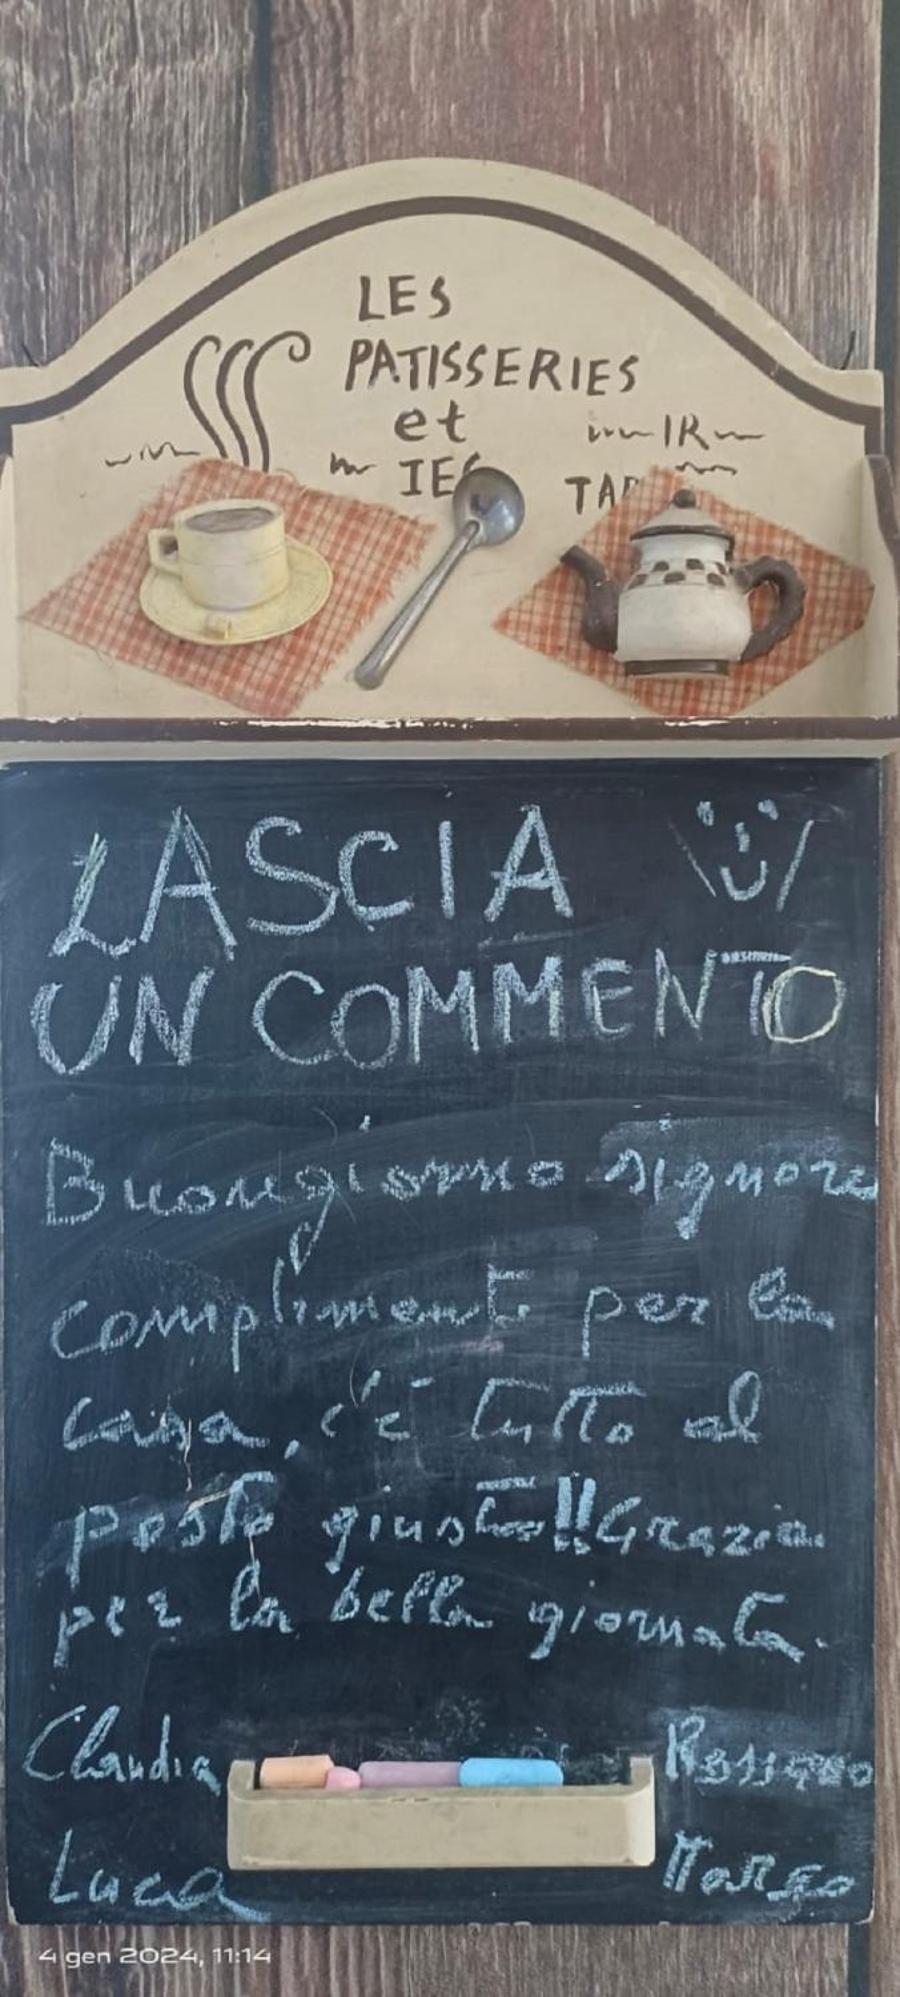 LES
PATISSERIES
et
IR
IES
TAR
LASCIA
UN COMMENTO
Buongiorno signore
complimenti per la
casa, c'è tutto al
posto giusto!! Grazie
per la bella giornata.
Claudia
Luca
Marco
4 gen 2024, 11:14